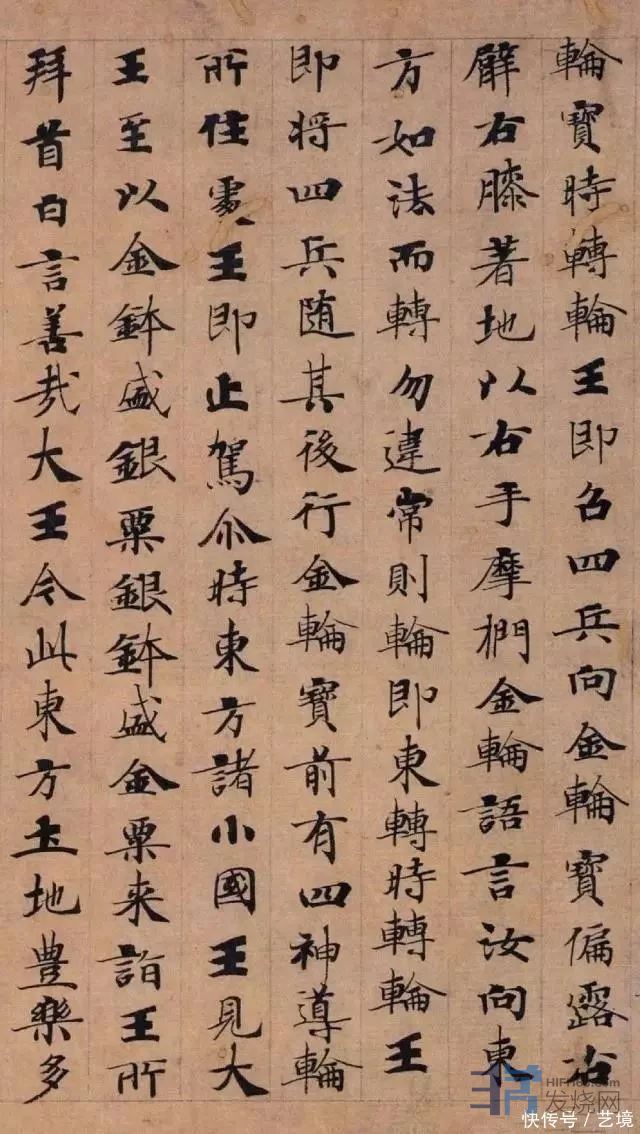 輪寶時轉輪王即召四兵向金輪寶偏露右
臂右膝著地以右手摩捫金輪語言汝向東
方如法而轉勿違常則輪即東轉時轉輪王
即將四兵随其後行金輪寶前有四神導輪
所住處王即止駕尒時東方諸小國王見大
王至以金鉢盛銀粟銀鉢盛金粟来詣王所
拜首白言善哉大王令此東方土地豊樂多
HIFI168.com
发烧网
快传号/艺境